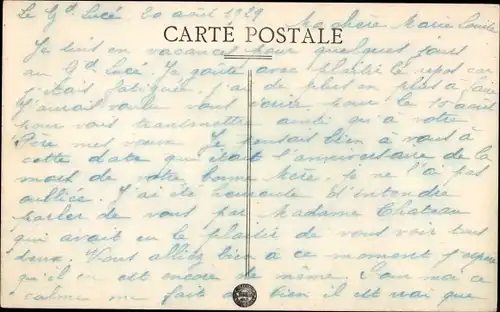 Le Gd Lucé 20 août 1929
Ma chère Marie Louise
CARTE POSTALE
Je suis en vacances pour quelques jours
au Gd Lucé. Je goûte avec plaisir le repos car
j'étais fatiguée. J'ai de plus en plus à faire
J'aurais voulu vous écrire pour le 15 août
pour vous transmettre ainsi qu'à votre
Père mes vœux. Je pensais bien à vous à
cette date qui était l'anniversaire de la
mort de votre bonne Mère, je ne l'ai pas
oubliée. J'ai été heureuse d'entendre
parler de vous par Madame Chateau
qui avait eu le plaisir de vous voir tous
deux. Vous alliez bien à ce moment j'espère
qu'il en est encore de même. Pour moi ce
calme me fait du bien il est vrai que